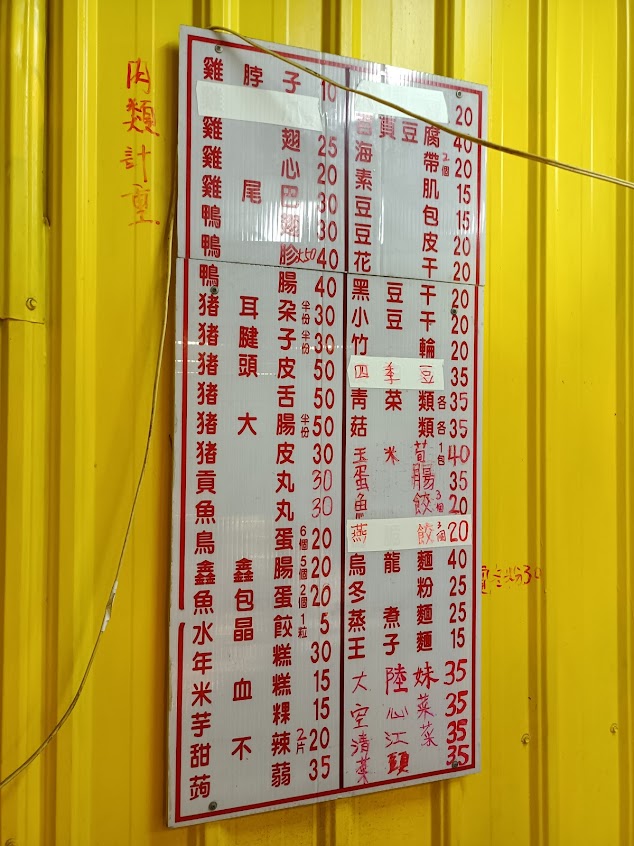 肉類計重
雞脖子 10
雞翅 25
雞心 20
雞尾巴 30
鴨翅 30
鴨胗 40
鴨腸 40
豬耳朵 半份 30
豬腱子 半份 30
豬頭皮 50
豬舌 50
豬大腸 半份 50
豬皮 30
貢丸 30
魚丸 30
鳥蛋 6個 20
鑫鑫腸 5個 20
魚包蛋 2個 20
水晶餃 1粒 5
年糕 30
米血糕 15
芋粿 15
甜不辣 2片 20
蒟蒻 35
20
豆腐 40
海帶 2個 20
素肌 15
豆包 15
豆皮 20
花干 20
黑豆干 20
小豆干 20
竹輪 20
四季豆 35
青菜類 各 35
菇類 各 35
玉米荀 1包 40
蛋腸 35
魚餃 3個 20
燕餃 3個 20
烏龍麵 40
冬粉 25
蒸煮麵 25
王子麵 15
大陸妹 35
空心菜 35
清江菜 35
菜頭 35
粉30